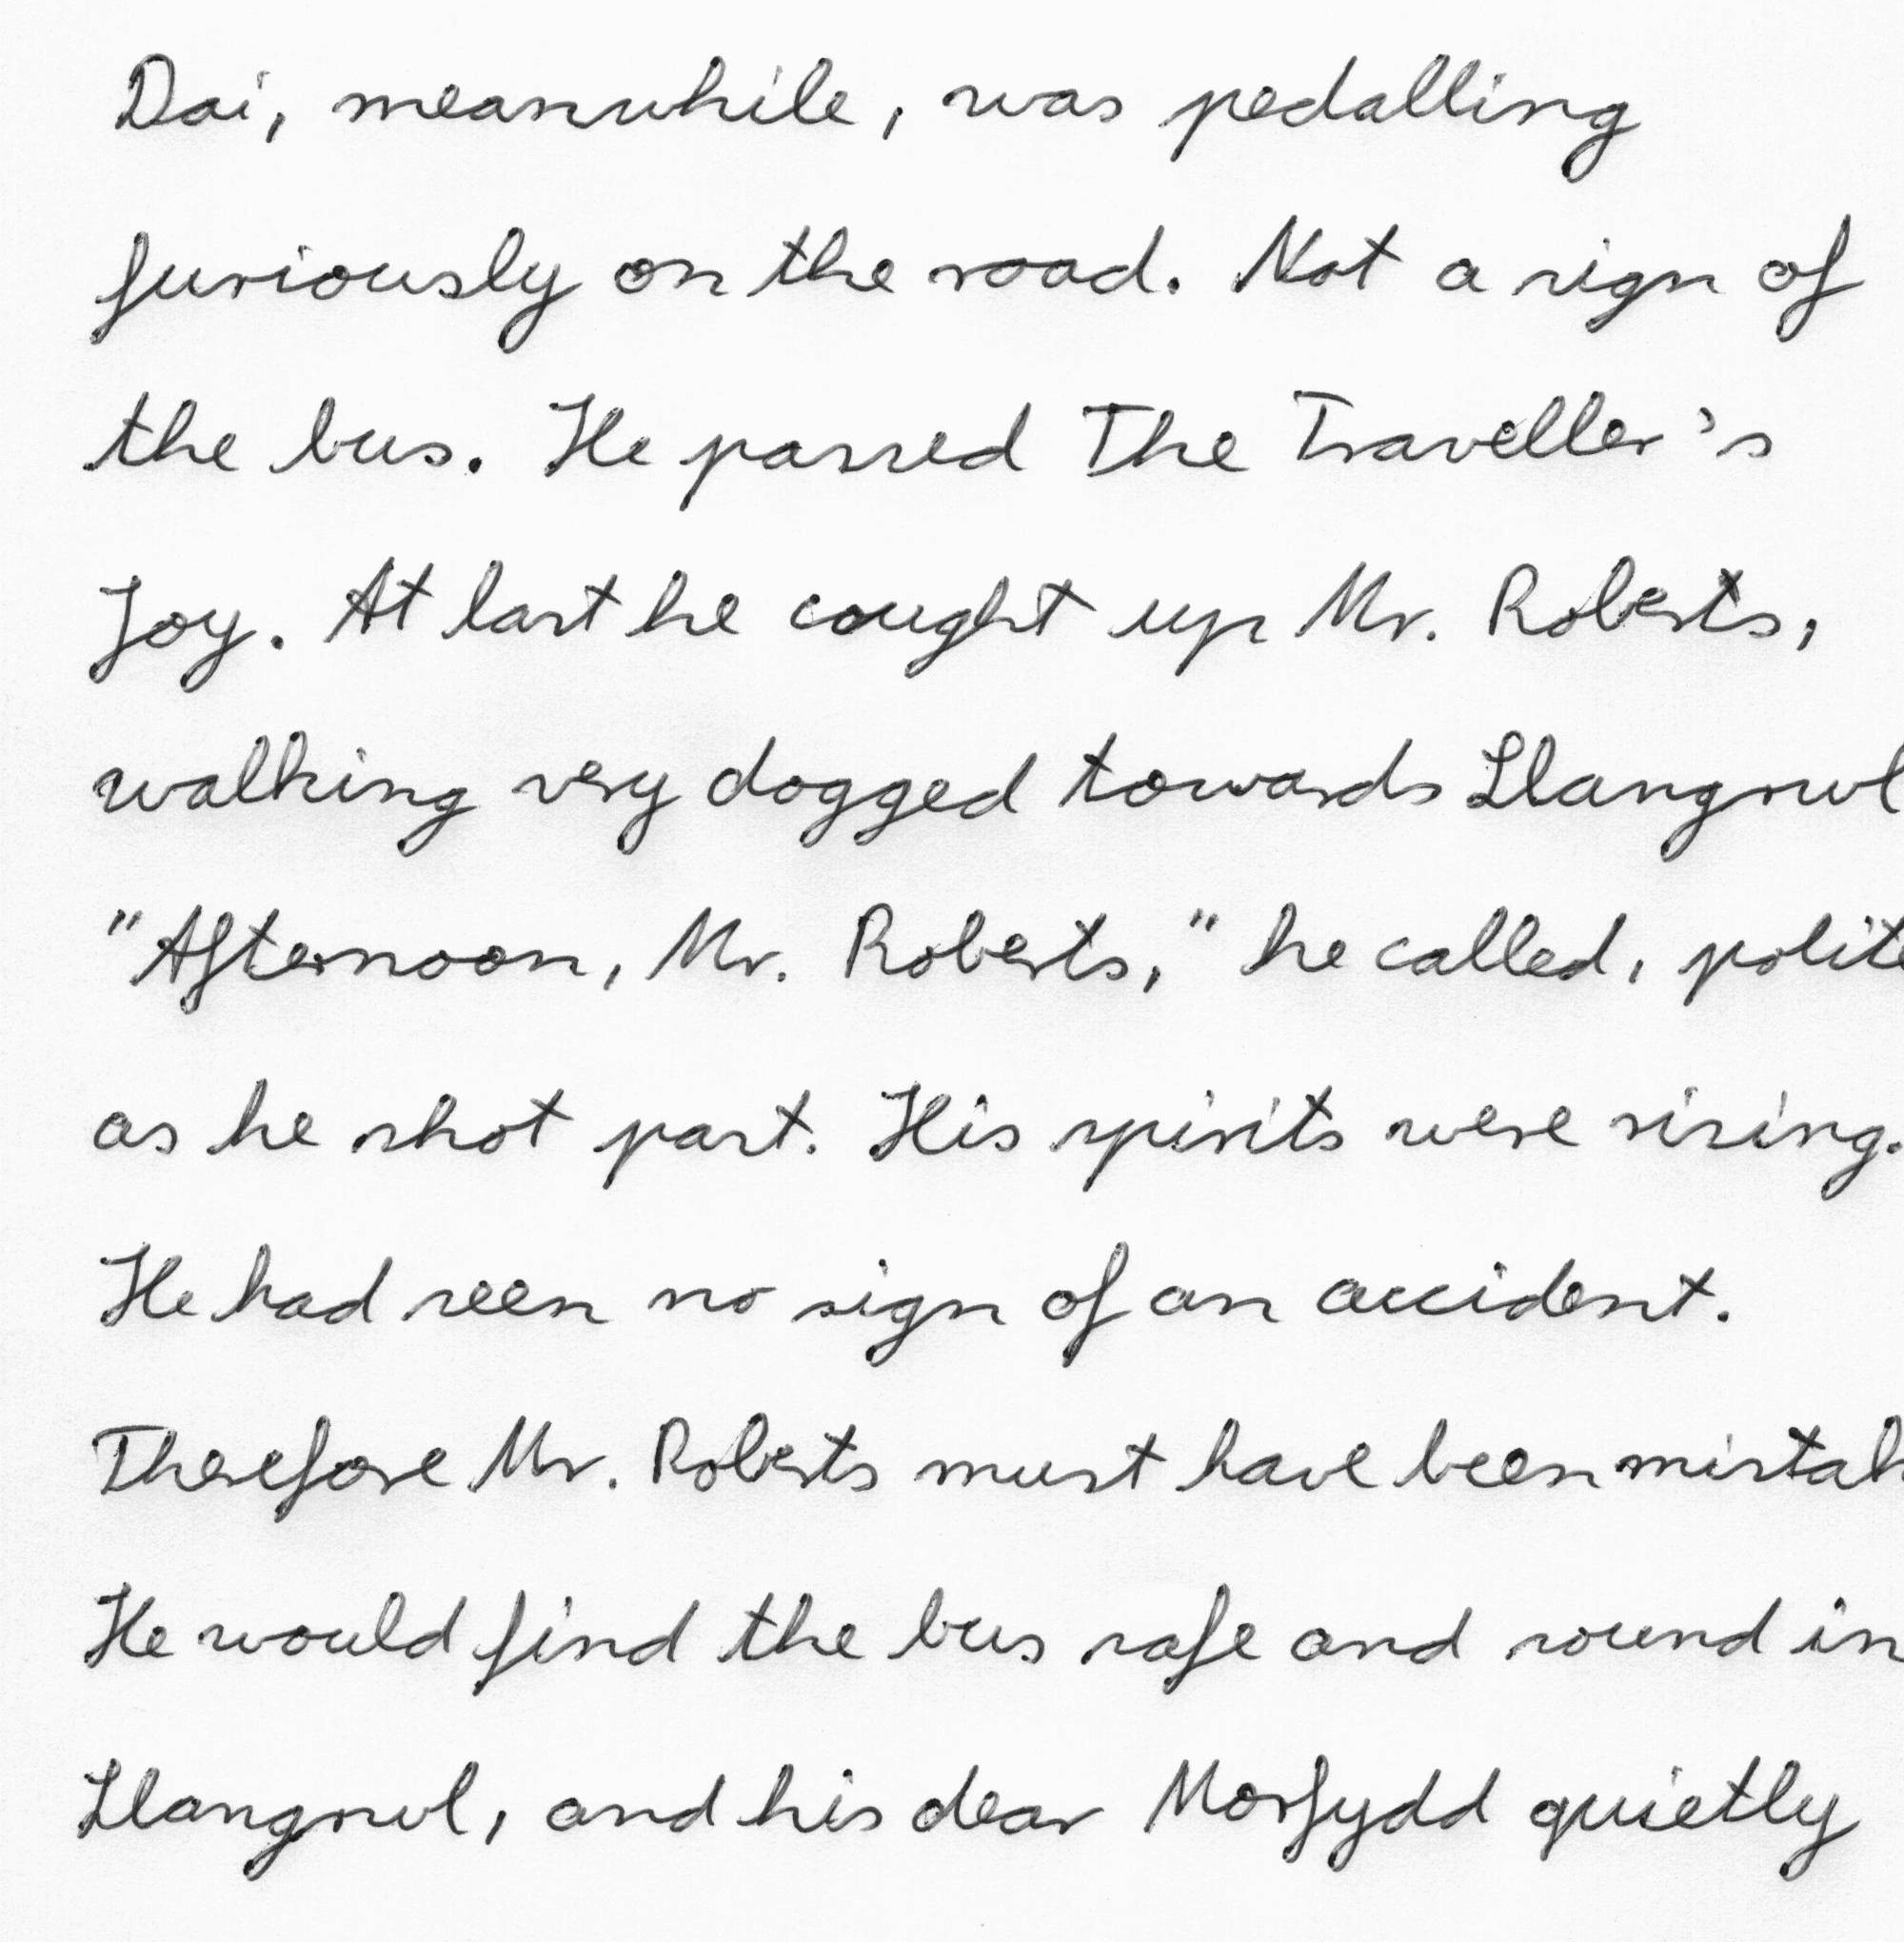 Dai, meanwhile, was pedalling
furiously on the road. Not a sign of
the bus. He passed The Traveller's
Joy. At last he cought up Mr. Roberts,
walking very dogged towards Llangrwl
"Afternoon, Mr. Roberts," he called, polite
as he shot past. His spirits were rising.
He had seen no sign of an accident.
Therefore Mr. Roberts must have been mistak
He would find the bus safe and sound in
Llangrwl, and his dear Morfydd quietly